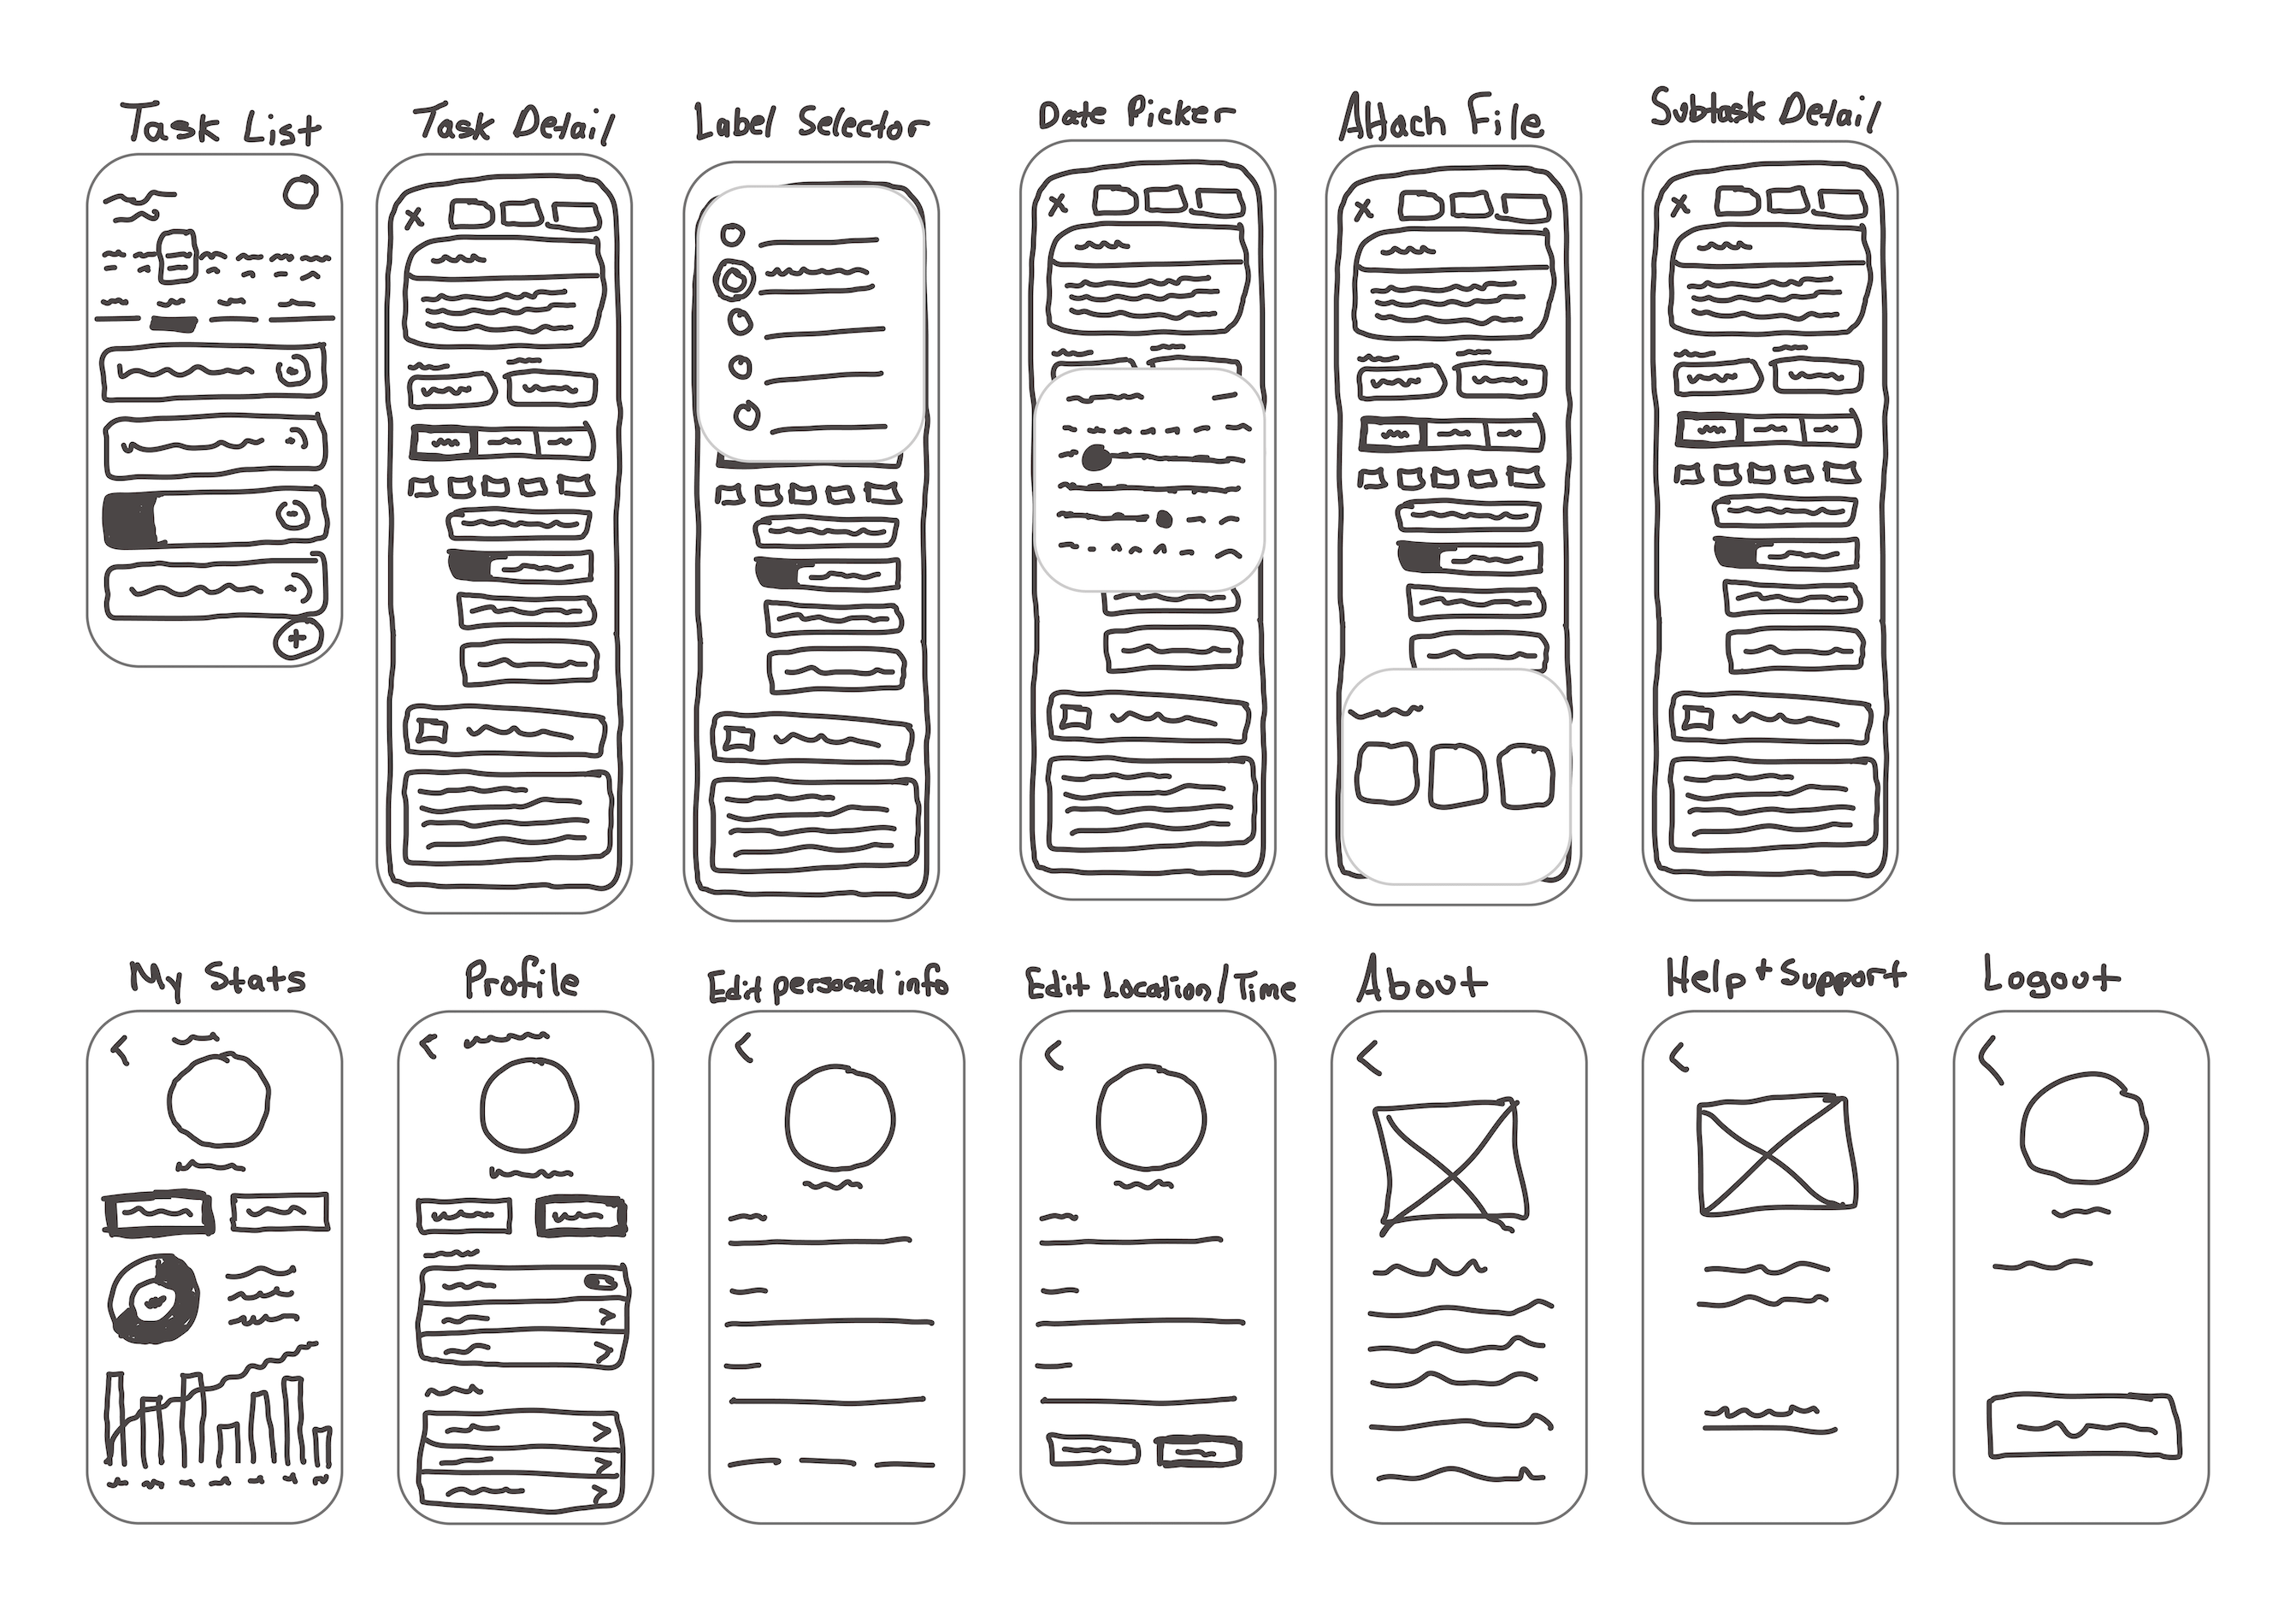 Task List
Task Detail
Label Selector
Date Picker
Attach File
Subtask Detail
My Stats
Profile
Edit personal info
Edit Location/Time
About
Help + Support
Logout